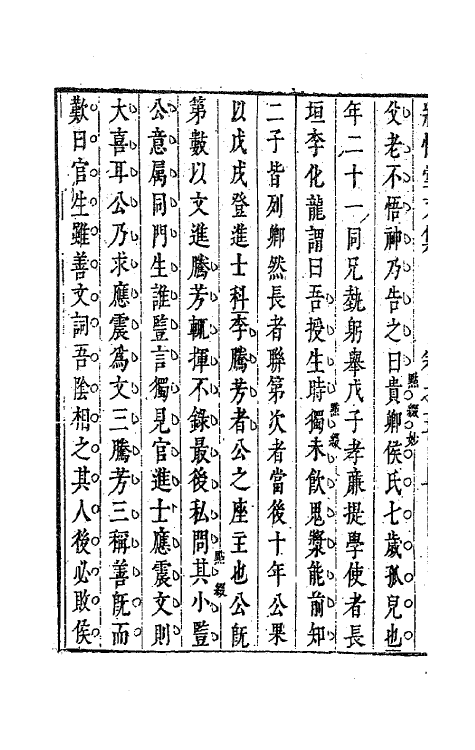 父老不悟神乃告之曰貴卿侯氏七歲孤兒也
點綴妙
年二十一同兄執躬舉戊子孝廉提學使者長
垣李化龍謂曰吾授生時獨未飲鬼漿能前知
點綴
二子皆列卿然長者聯第次者當後十年公果
以戊戌登進士科李騰芳者公之座主也公既
第數以文進騰芳輒揮不錄最後私問其小豎
點綴
公意属同門生誰豎言獨見官進士應震文則
大喜耳公乃求應震爲文三騰芳三稱善既而
歎曰官生雖善文詞吾陰相之其人後必敗侯